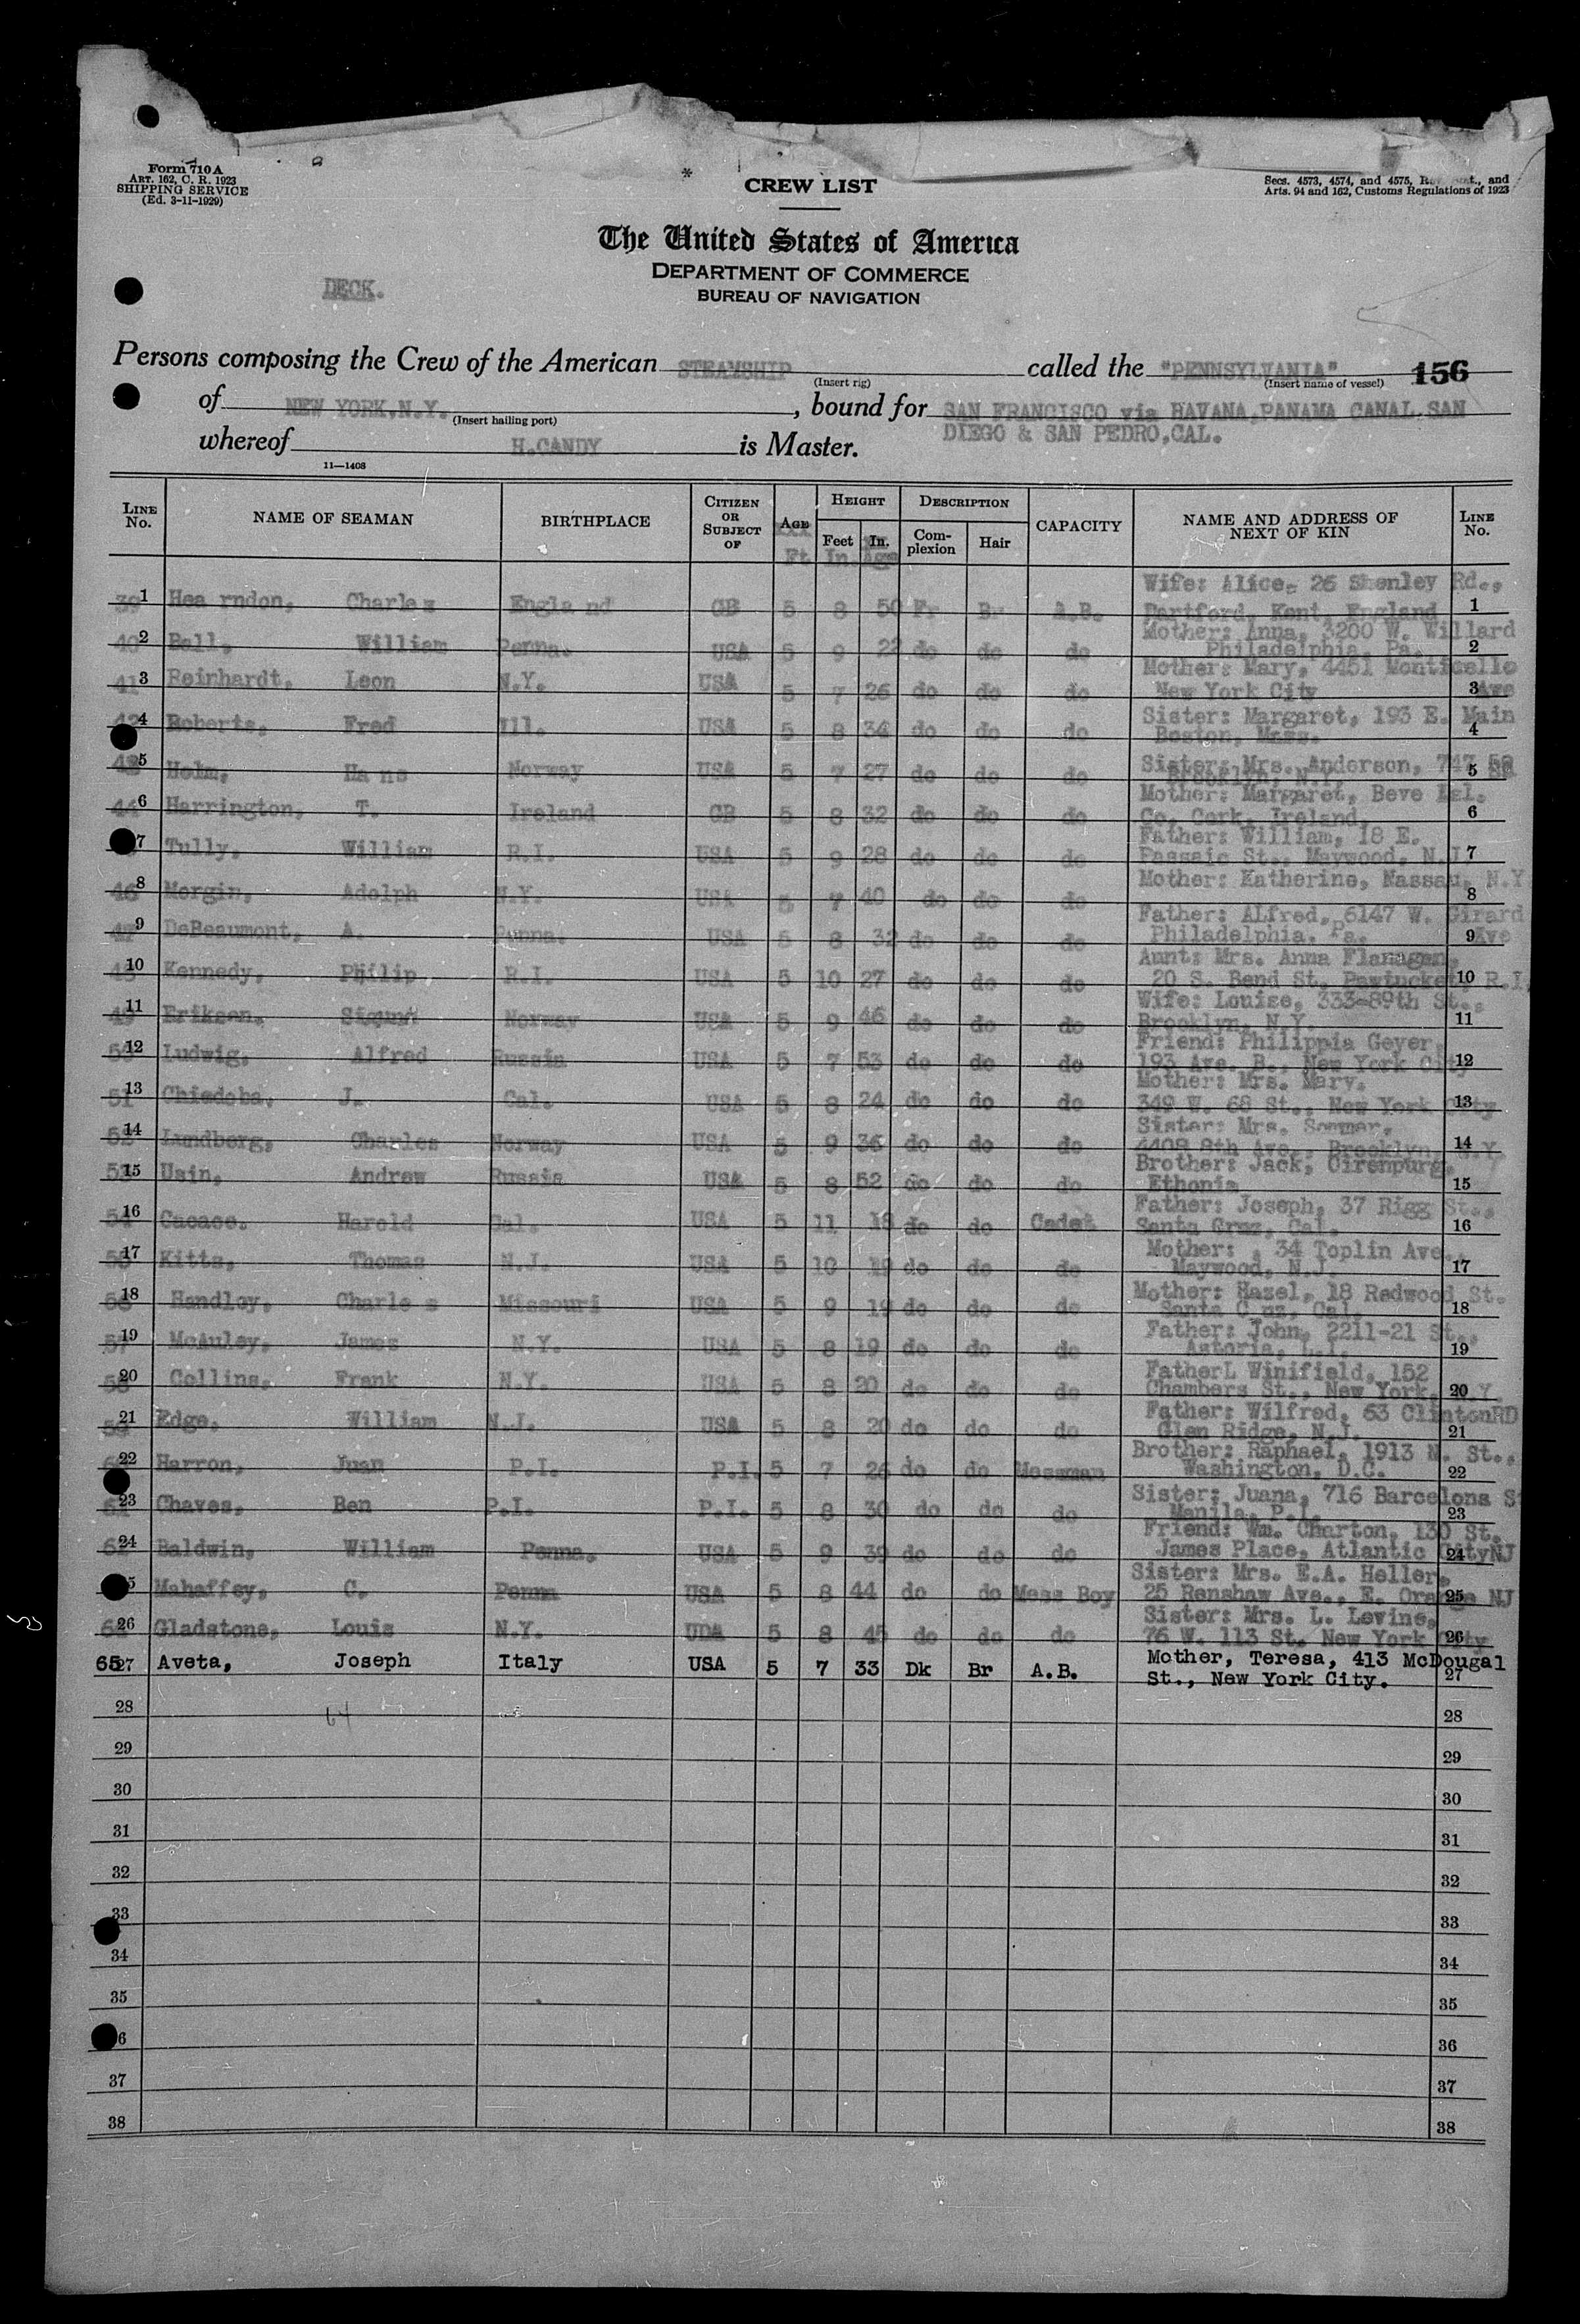 Form 710 A
ART. 162, C. R. 1923
SHIPPING SERVICE
(Ed. 3-11-1929)
CREW LIST
Secs. 4573, 4574, and 4575, and
Arts. 94 and 162, Customs Regulations of 1923
The United States of America
DEPARTMENT OF COMMERCE
BUREAU OF NAVIGATION
DECK.
Persons composing the Crew of the American STEAMSHIP called the "PENNSYLVANIA" 156
(Insert rig) (Insert name of vessel)
of NEW YORK,N.Y. , bound for SAN FRANCISCO via HAVANA,PANAMA CANAL,SAN
(Insert hailing port)
DIEGO & SAN PEDRO,CAL.
whereof H.CANDY is Master.
11—1408
LINE No. NAME OF SEAMAN BIRTHPLACE CITIZEN OR SUBJECT OF AGE HEIGHT Feet In. DESCRIPTION Complexion Hair CAPACITY NAME AND ADDRESS OF NEXT OF KIN LINE No.
Ft In. Age
Wife: Alice, 26 Shenley Rd.,
39 1 Hea rndon, Charles Engla nd GB 5 8 50 Fr Br A.B. Dartford, Kent, England 1
Mother: Anna, 3200 W. Willard
40 2 Ball, William Penna. USA 5 9 22 do do do Philadelphia, Pa. 2
Mother: Mary, 4451 Monticello
41 3 Reinhardt, Leon N.Y. USA 5 7 26 do do do New York City 3 Ave
Sister: Margaret, 193 E. Main
42 4 Roberts, Fred Ill. USA 5 8 34 do do do Boston, Mass. 4
Sister: Mrs. Anderson, 747 59
43 5 Holm, Ha ns Norway USA 5 7 27 do do do Brooklyn, N.Y. 5
Mother: Margaret, Beve
44 6 Harrington, T. Ireland GB 5 8 32 do do do Co. Cork, Ireland, 6
Father: William, 18 E.
7 Tully, William R.I. USA 5 9 28 do do do Passaic St., Maywood, N.J. 7
Mother: Katherine, Nassau, N.Y.
46 8 Morgin, Adolph N.Y. USA 5 7 40 do do do 8
Father: ALfred, 6147 W. Girard
47 9 DeBeaumont, A. Penna. USA 5 8 32 do do do Philadelphia, Pa. 9 Ave
Aunt: Mrs. Anna Flanagan,
48 10 Kennedy, Philip R.I. USA 5 10 27 do do do 20 S. Bend St. Pawtucket, 10 R.I.
Wife: Louise, 333-89th St.,
49 11 Eriksen, Norway USA 5 9 46 do do do Brooklyn, N.Y. 11
Friend: Philippia Geyer,
50 12 Ludwig, Alfred Russia USA 5 7 53 do do do 193 Ave. B., New York City 12
Mother: Mrs. Mary,
51 13 Chiedoba, J. Cal. USA 5 8 24 do do do 349 W. 68 St., New York City 13
Sister: Mrs. Sommer,
52 14 Lundberg, Charles Norway USA 5 9 36 do do do 4408 8th Ave., Brooklyn, N.Y. 14
Brother: Jack, Cirenpurg,
53 15 Usin, Andrew Russia USA 5 8 52 do do do Ethonia 15
Father: Joseph, 37 Rigg St.,
54 16 Cacace, Harold Cal. USA 5 11 18 do do Cadet Santa Cruz, Cal. 16
Mother: , 34 Toplin Ave.,
55 17 Kitts, Thomas N.J. USA 5 10 19 do do do Maywood, N.J. 17
Mother: Hazel, 18 Redwood St.
56 18 Handley, Charle s Missouri USA 5 9 19 do do do Santa C uz, Cal. 18
Father: John, 2211-21 St.,
57 19 McAuley, James N.Y. USA 5 8 19 do do do Astoria, L.I. 19
FatherL Winifield, 152
58 20 Collins, Frank N.Y. USA 5 8 20 do do do Chambers St., New York, N.Y. 20
Father: Wilfred, 63 ClintonRD
59 21 Edge, William N.J. USA 5 8 20 do do do Glen Ridge, N.J. 21
Brother: Raphael, 1913 N. St.,
60 22 Harron, Juan P.I. P.I. 5 7 26 do do Messman Washington, D.C. 22
Sister: Juana, 716 Barcelona St
61 23 Chaves, Ben P.I. P.I. 5 8 30 do do do Manila, P.I. 23
Friend: Wm. Charton, 130 St.
62 24 Baldwin, William Penna. USA 5 9 39 do do do James Place, Atlantic CityNJ 24
Sister: Mrs. E.A. Heller,
5 Mahaffey, C. Penna USA 5 8 44 do do Mess Boy 25 Renshaw Ave., E. Orange NJ 25
Sister: Mrs. L. Levine,
64 26 Gladstone, Louis N.Y. UDA 5 8 45 do do do 76 W. 113 St. New York City 26
65 27 Aveta, Joseph Italy USA 5 7 33 Dk Br A.B. Mother, Teresa, 413 McDougal
St., New York City. 27
28 64 28
29 29
30 30
31 31
32 32
33 33
34 34
35 35
6 36
37 37
38 38